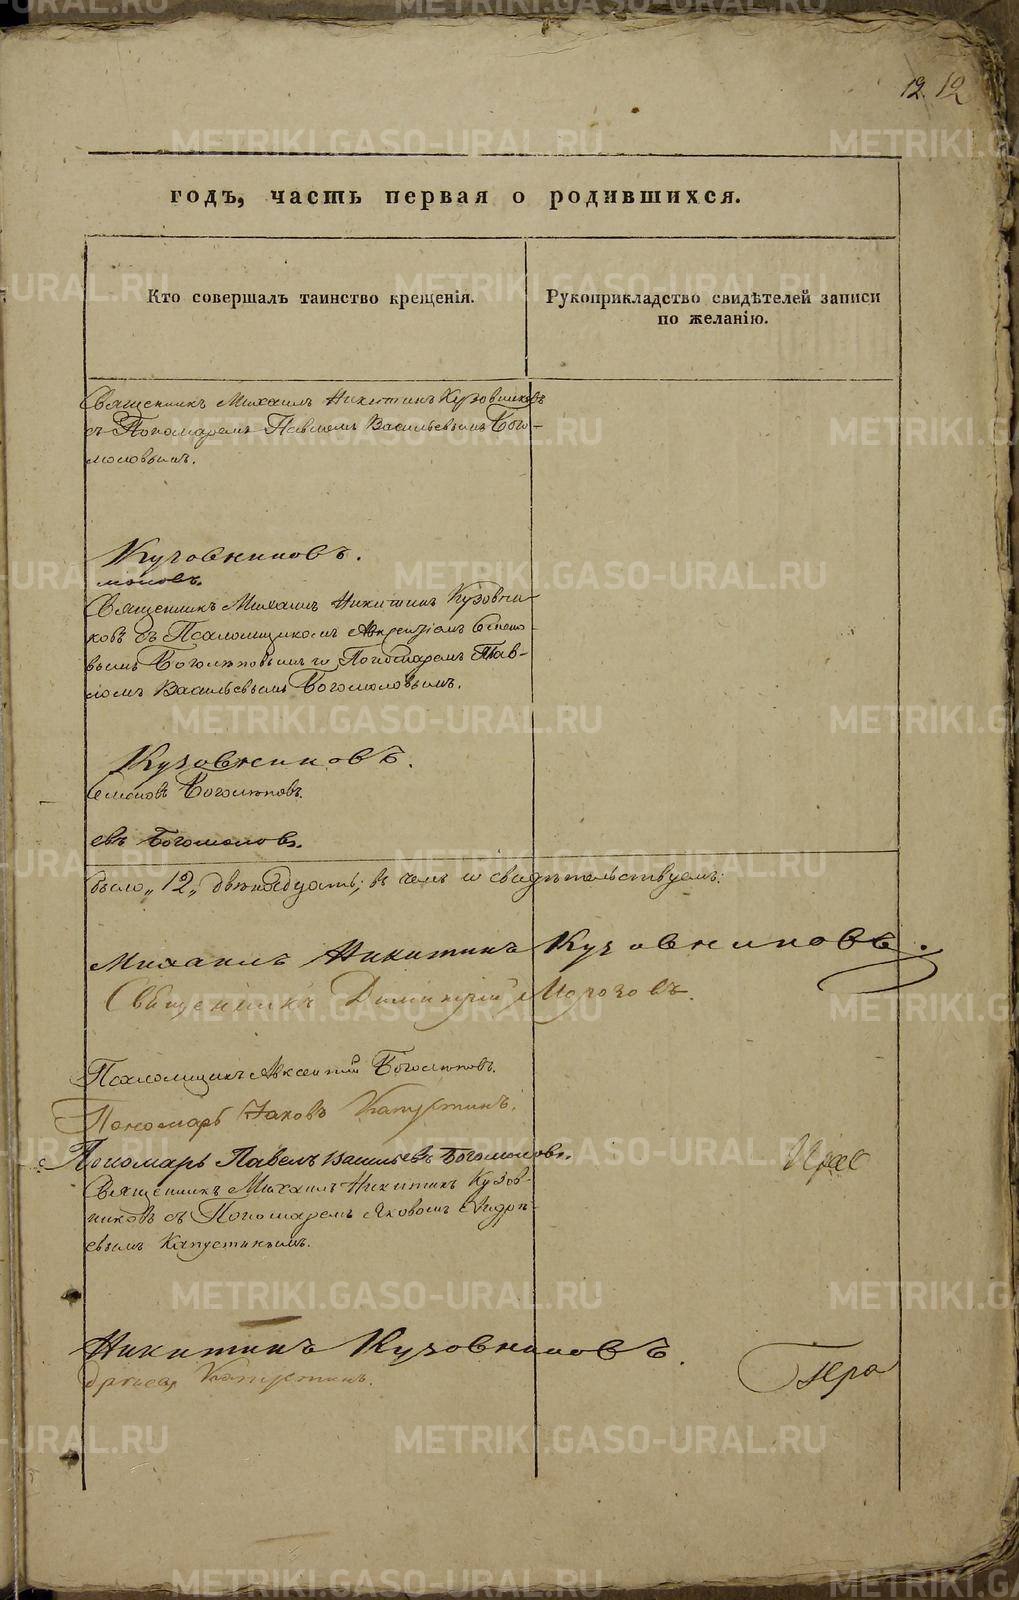 12. 12
годъ, часть первая о родившихся.
Кто совершалъ таинство крещенія.
Рукоприкладство свидѣтелей записи
по желанію.
Священникъ Михаилъ Никитинъ Кузовниковъ
съ Пономаремъ Павломъ Васильевымъ Бого-
моловымъ.
Кузовниковъ.
моловъ.
Священникъ Михаилъ Никитинъ Кузовни-
ковъ съ Псаломщикомъ Семено-
вымъ Боголюбовымъ и Пономаремъ Пав-
ломъ Васильевымъ Богомоловымъ.
Кузовниковъ.
Семеновъ Боголюбовъ.
евъ Богомоловъ.
было „12„ двѣнадцать; въ чемъ и свидѣтельствуемъ:
Михаилъ Никитинъ Кузовниковъ.
Священникъ Димитрій Морозовъ.
Псаломщикъ Авксентій Боголюбовъ.
Пономарь Іаковъ Капустинъ.
Пономарь Павелъ Васильевъ Богомоловъ.
Священникъ Михаилъ Никитинъ Кузов-
никовъ съ Пономаремъ Яковомъ Андрѣ-
евымъ Капустинымъ.
Никитинъ Кузовниковъ.
Капустинъ.
METRIKI.GASO-URAL.RU